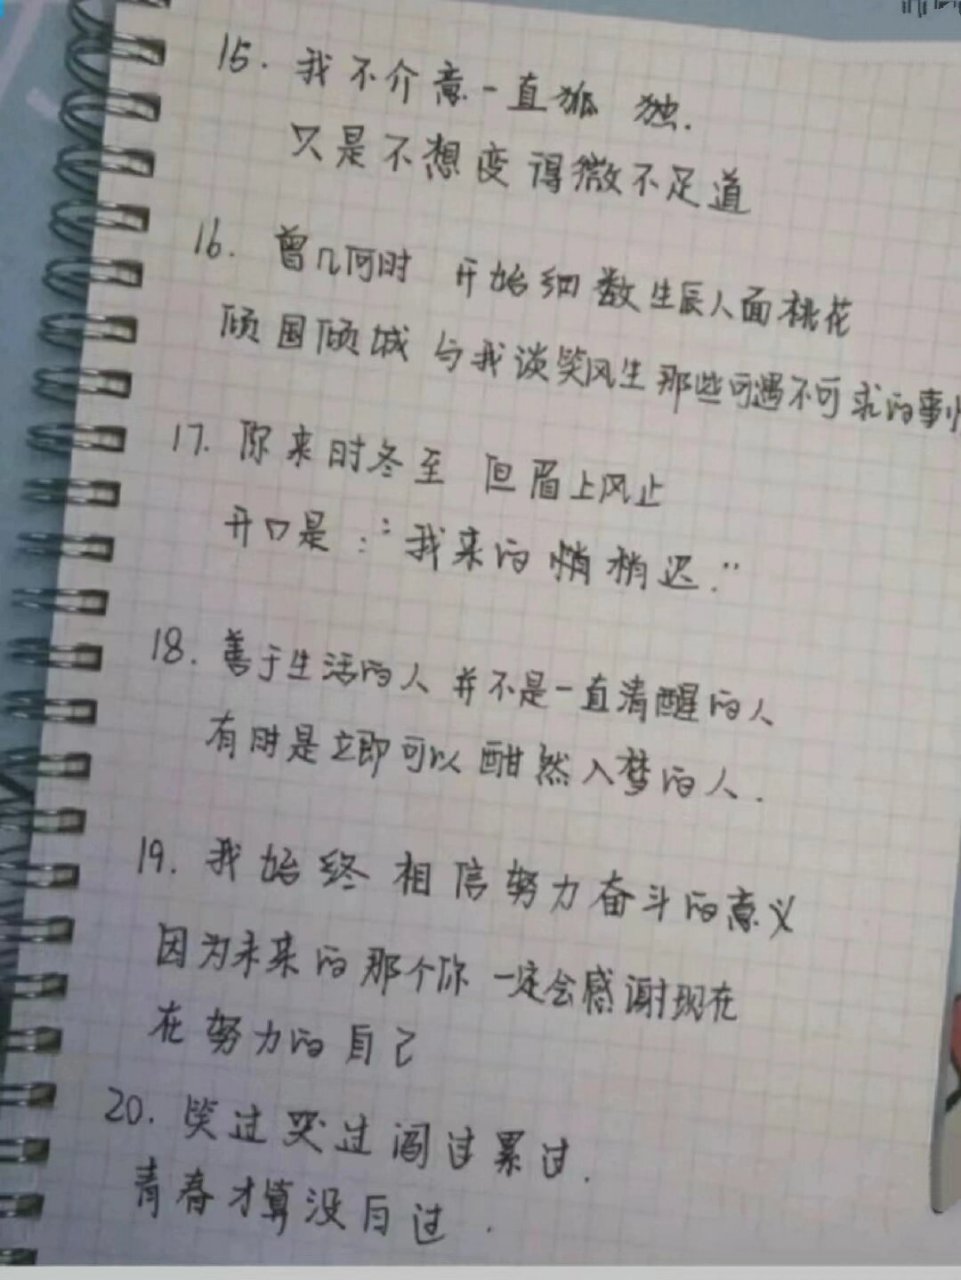 15. 我不介意一直孤独.
只是不想变得微不足道
16. 曾几何时 开始细数生辰人面桃花
倾国倾城 与我谈笑风生那些可遇不可求的事
17. 你来时冬至 但眉上风止
开口是:“我来的悄悄迟.”
18. 善于生活的人 并不是一直清醒的人
有时是立即可以酣然入梦的人.
19. 我始终相信努力奋斗的意义
因为未来的那个你 一定会感谢现在
在努力的自己
20. 笑过哭过闯过累过.
青春才算没白过.